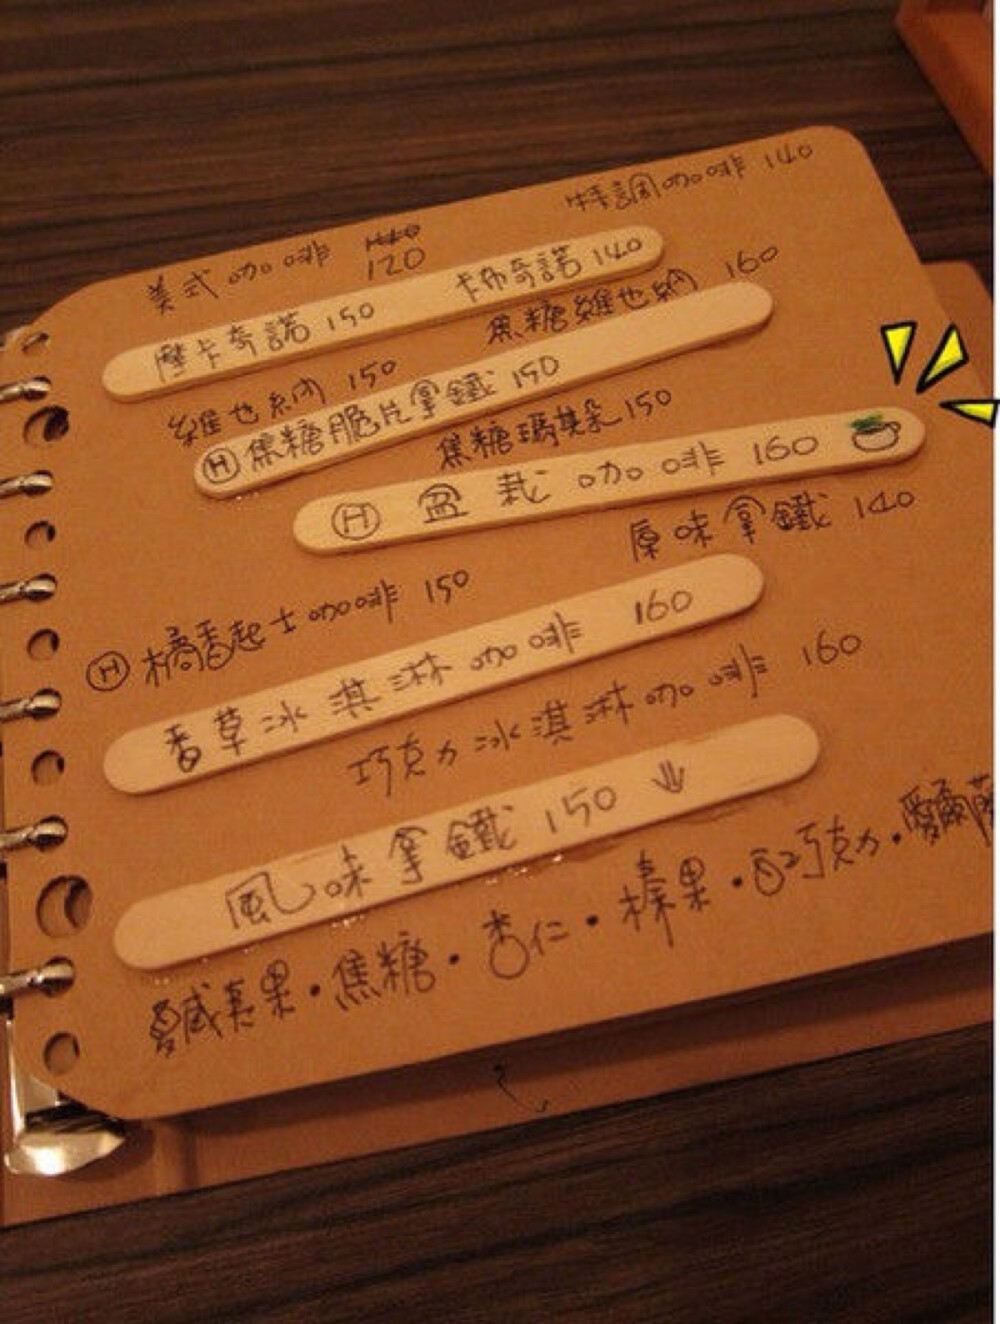 特調咖啡 140
美式咖啡 120
卡布奇諾 140
摩卡奇諾 150
焦糖維也納 160
維也納 150
Ⓗ 焦糖脆片拿鐵 150
焦糖瑪其朵 150
Ⓗ 盆栽咖啡 160
原味拿鐵 140
Ⓗ 橘香起士咖啡 150
香草冰淇淋咖啡 160
巧克力冰淇淋咖啡 160
風味拿鐵 150 ↓
焦糖・杏仁・榛果・白巧克力・愛爾蘭